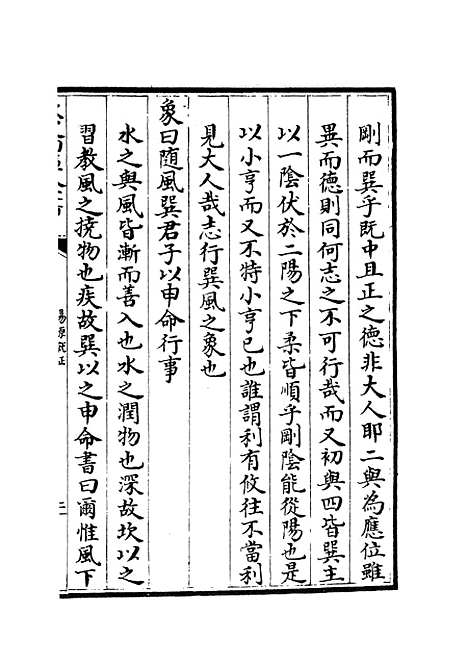 剛而巽乎既中且正之德非大人耶二與為應位雖
異而德則同何志之不可行哉而又初與四皆巽主
以一陰伏於二陽之下柔皆順乎剛陰能從陽也是
以小亨而又不特小亨已也誰謂利有攸往不當利
見大人哉志行巽風之象也
象曰随風巽君子以申命行事
水之與風皆漸而善入也水之潤物也深故坎以之
習教風之撓物也疾故巽以之申命書曰爾惟風下
易原就正